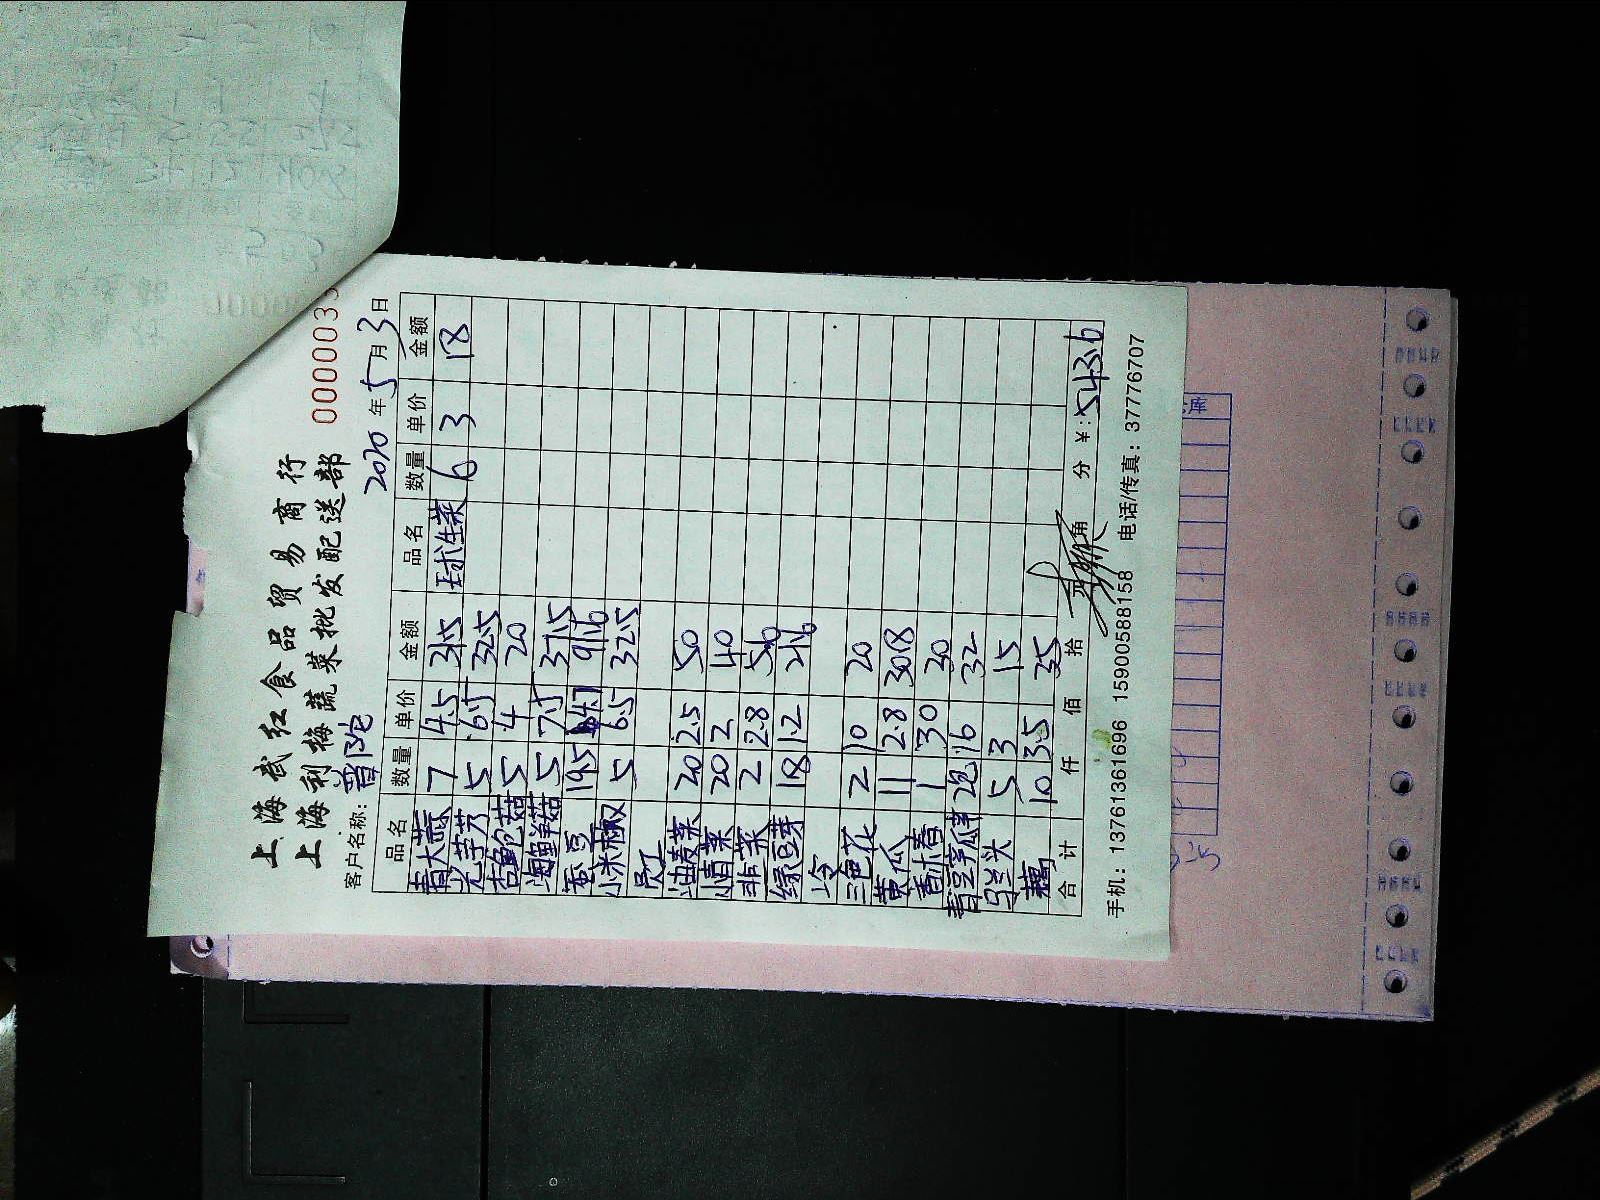 上海武红食品贸易商行
上海利梅蔬菜批发配送部
0000033
客户名称: 普陀 2020年5月3日
品名 数量 单价 金额 品名 数量 单价 金额
青大蒜 7 4.5 31.5 球生菜 6 3 18
光芋艿 5 6.5 32.5
杏鲍菇 5 4 20
海鲜菇 5 7.5 37.5
蚕豆 19.5 4.7 91.6
小米椒 5 6.5 32.5
员工
油麦菜 20 2.5 50
小青菜 20 2 40
韭菜 2 2.8 5.6
绿豆芽 18 1.2 21.6
冷
三色花 2 10 20
黄瓜 11 2.8 30.8
香木春 1 30 30
2 16 32
马兰头 5 3 15
藕 10 3.5 35
合计 仟 佰 拾 元 角 分 ¥: 543.6
手机: 13761361696 15900588158 电话/传真: 37776707
库